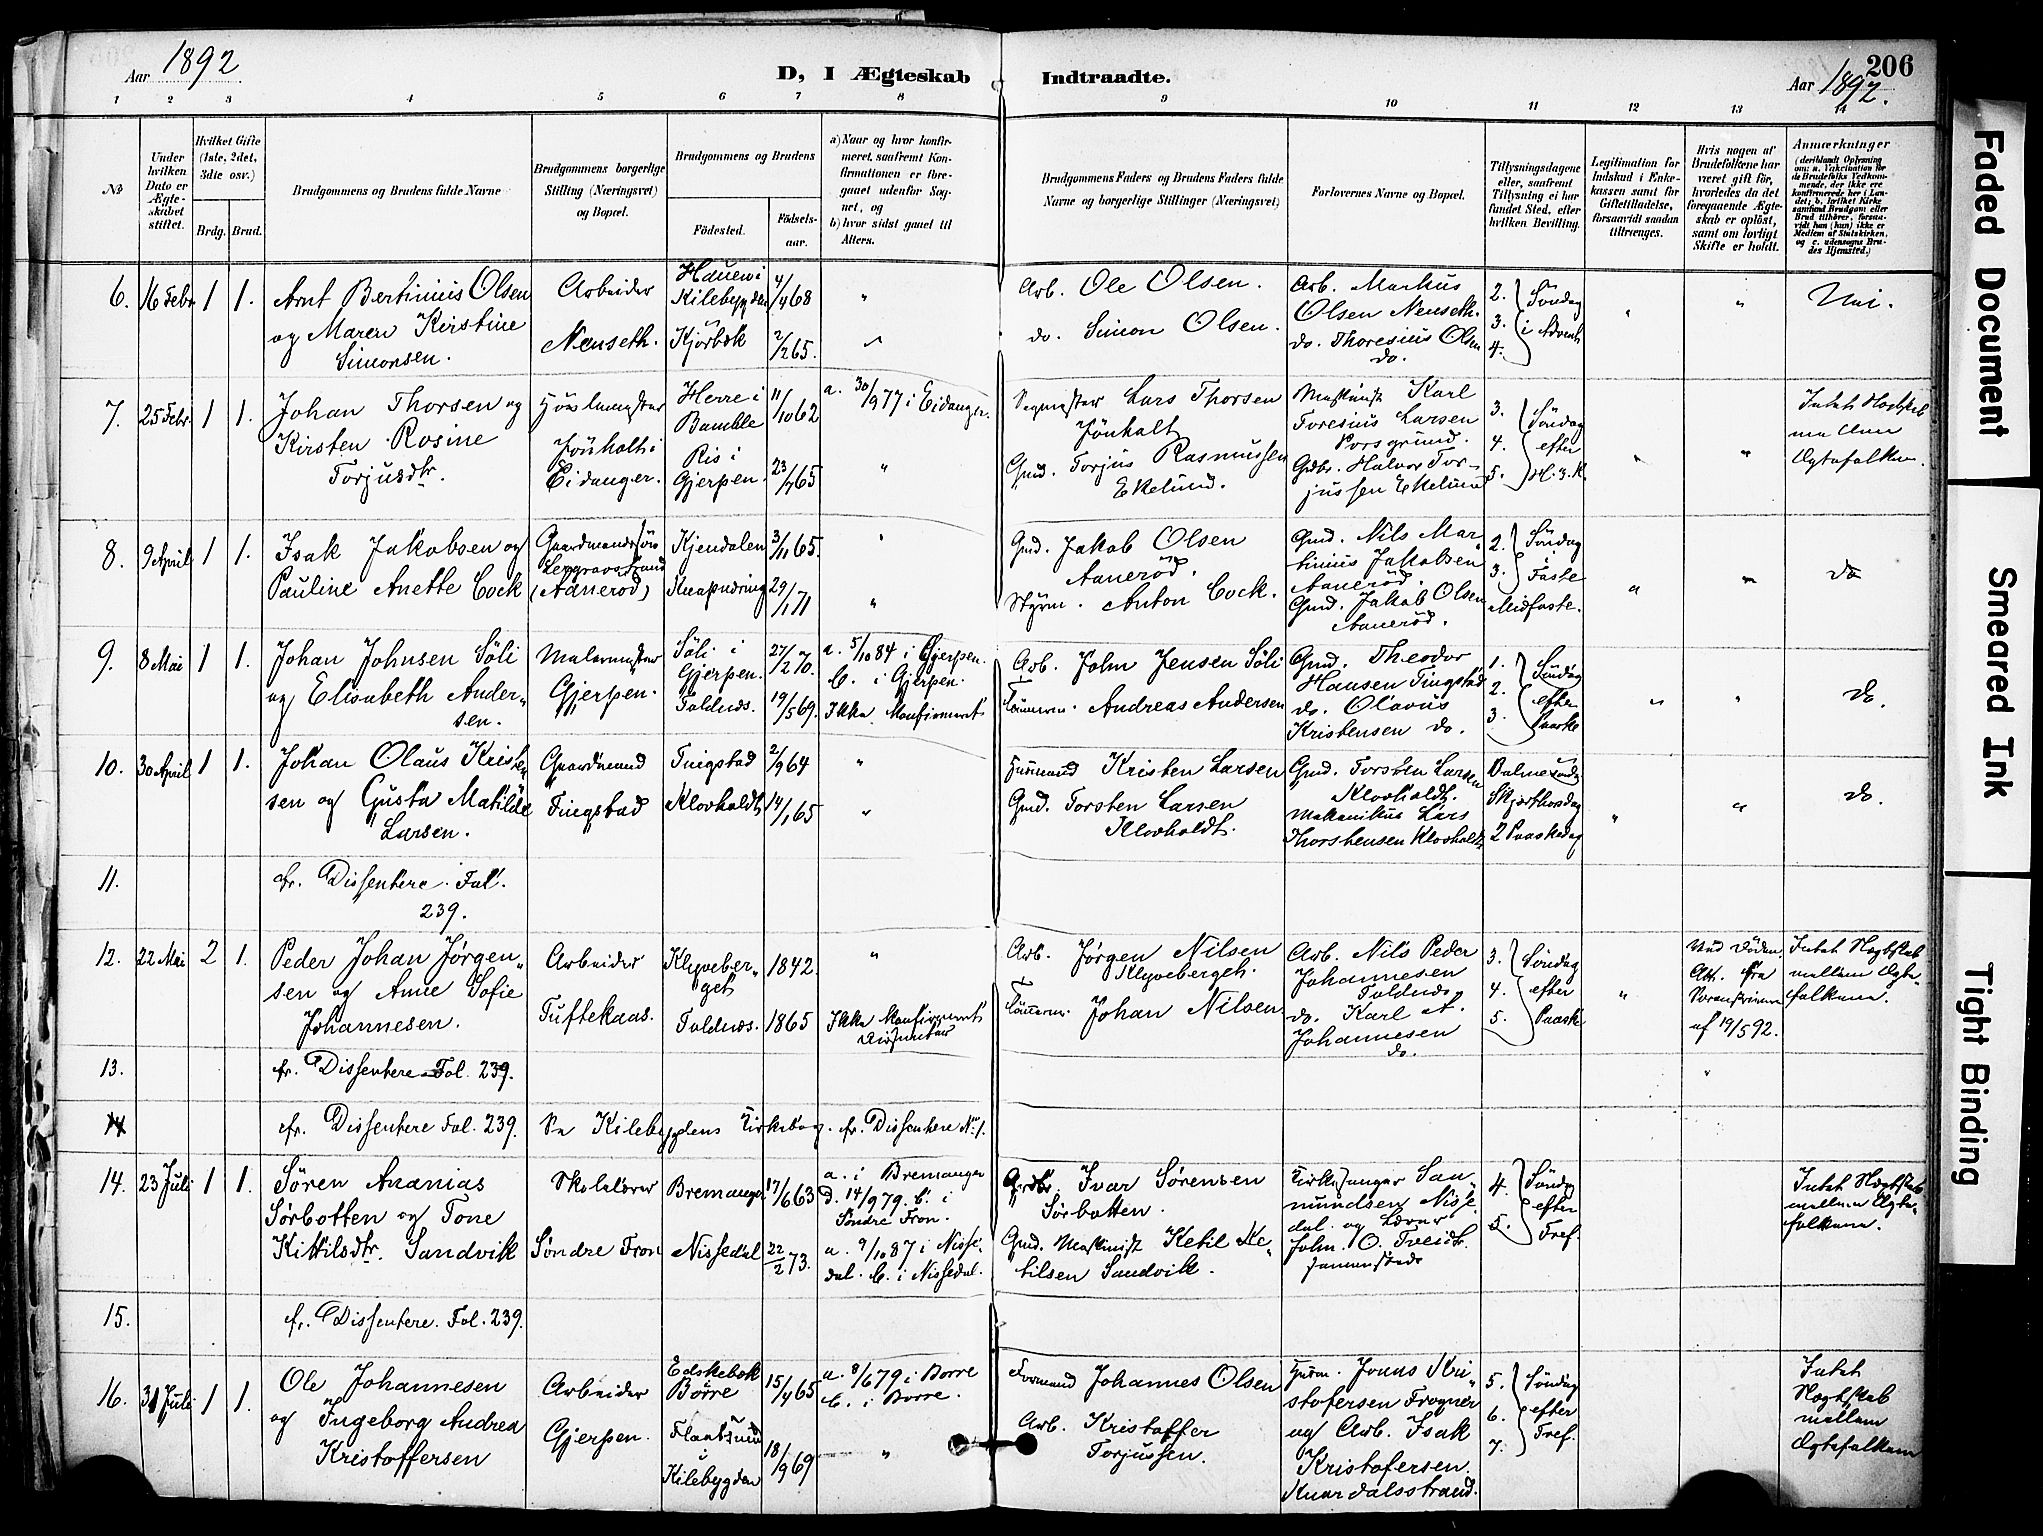 Aar 1892
D, I Ægteskab Indtraadte.
206
Aar 1892.
1 2 3 4 5 6 7 8 9 10 11 12 13 14
No
Under hvilken Dato er Ægteskabet stiftet.
Hvilket Gifte (1ste, 2det, 3die osv.)
Brdg. Brud.
Brudgommens og Brudens fulde Navne
Brudgommens borgerlige Stilling (Næringsvei) og Bopæl.
Brudgommens og Brudens
Fødested.
Fødsels-aar.
a) Naar og hvor konfirmeret, saafremt Konfirmationen er foregaaet udenfor Sognet, og
b) hvor sidst gaaet til Alters.
Brudgommens Faders og Brudens Faders fulde Navne og borgerlige Stillinger (Næringsvei)
Forlovernes Navne og Bopæl.
Tillysningsdagene eller, saafremt Tillysning ei har fundet Sted, efter hvilken Bevilling.
Legitimation for Indskud i Enkekassen samt for Giftetilladelse, forsaavidt saadan tiltrænges.
Hvis nogen af Brudefolkene har været gift før, hvorledes da det foregaaende Ægteskab er opløst, samt om lovligt Skifte er holdt.
Anmærkninger
6. 16 Febr 1 1. Arnt Bertinius Olsen
og Maren Kirstine
Simonsen.
Arbeider
Nenseth.
Kilebygden 4/4 68
Kjørbæk 2/2 65.
Arb. Ole Olsen.
do. Simon Olsen.
Arb. Markus
Olsen Nenseth.
do. Thoresius Olsen
do.
2. Søndag
3. i Advent
4.
7. 25 Febr. 1 1. Johan Thorsen og
Kirsten Rosine
Torjusdtr.
Jönholt i
Eidanger.
Herre i
Bamble 11/10 62
Ris i
Gjerpen.
a. 30/9 77 i Eidanger.
Lars Thorsen
Jönholt
Gmd. Torjus Rasmussen
Ekelund.
Maskinist Karl
Foresius Larsen
Porsgrund.
Grdbr. Halvor Tor-
jussen Ekelund
3. Søndag
4. efter
5. H. 3. K.
Intet Slægtskab
Ægtefolkene.
8. 9 April 1 1. Isak Jakobsen og
Pauline Anette Cock
Gaardmandssøn
(Aanerød)
Kjendalen 3/11 65.
Knapndring 29/1 71
Gmd. Jakob Olsen
Aanerød.
Styrm. Anton Cock.
Gmd. Nils Mar-
tinius Jakobsen
Aanerød.
Gmd. Jakob Olsen
Aanerød.
2. Søndag
3. i Faste
Midfaste.
do
9. 8 Mai 1 1. Johan Johnsen Söli
og Elisabeth Ander-
sen.
Malermester
Gjerpen.
Söli i
Gjerpen. 27/2 70.
Foldnæs. 19/5 69.
a. 5/10 84 i Gjerpen.
b. i Gjerpen.
Ikke Konfirmeret
Arb. John Jensen Söli
Tømmerm. Andreas Andersen
Gmd. Theodor
Hansen Tingstad
do. Olavus
Kristensen do.
1. Søndag
2. efter
3. Paaske
do.
10. 30 April 1 1. Johan Olaus Kristen
sen og Gusta Matilde
Larsen.
Gaardmand
Tingstad
Tingstad 2/9 64
Klovholdt 14/1 65
Husmand Kristen Larsen
Gmd. Torsten Larsen
Klovholdt.
Gmd. Torsten Larsen
Klovholdt.
Mekanikus Lars
Thorstensen Klovholdt
Palmesøndg
Skjærthorsdag
2 Paaskedag
do.
11. cfr. Dissentere. Fol.
239.
12. 22 Mai 2 1. Peder Johan Jørgen-
sen og Anne Sofie
Johannesen.
Arbeider
Tuftekaas.
Klyveber-
get 1842.
Foldnæs. 1865
Ikke Konfirmeret
Dissenter
Arb. Jørgen Nilsen
Klyveberget.
Tømmerm. Johan Nilsen
Arb. Nils Peder
Johannesen
Foldnæs.
do. Karl A.
Johannesen
do.
3. Søndag
4. efter
5. Paaske
Ved Döden.
Att. fra
af 19/5 92.
Intet Slægtskab
mellem Ægte-
folkene.
13. cfr. Dissentere Fol. 239.
14 cfr. Dissentere Fol. 239. Se Kilebygdens Kirkebog. cfr. Dissentere No 1.
14. 23 Juli 1 1. Søren Ananias
Sørbotten og Tone
Kittilsdtr. Sandvik
Skolelærer
Søndre Fron
Bremanger 17/6 63
Nissedal 22/2 73.
a. i Bremanger
d. 14/9 79. b. i
Søndre Fron.
a. 9/10 87 i Nisse-
dal. b. i Nissedal.
Grdbr. Ivar Sørensen
Sørbotten.
Gmd. Maskinist Ketil Ke-
tilsen Sandvik.
Kirkesanger San-
mundsen Nisse
dal. og Lærer
John. O. Tveidt.
4. Søndag
efter
5. Tref.
Intet Slægtskab
mellem Ægte-
folkene.
15. cfr. Dissentere. Fol. 239.
16. 31 Juli 1 1. Ole Johannesen
og Ingeborg Andrea
Kristoffersen
Arbeider
Gjerpen.
Børre 15/4 65
i
Kilebygden 18/9 69
a. 8/6 79 i Borre
b. i Borre.
Formand Johannes Olsen
Arb. Kristoffer
Torjussen.
Jonas Kri-
stofersen Frogner
og Arb. Isak
Kristofersen.
Knardalsstrand.
5. Søndag
6. efter
7. Tref.
Intet
Slægtskab
mellem
Ægtefolkene
Faded Document
Smeared Ink
Tight Binding